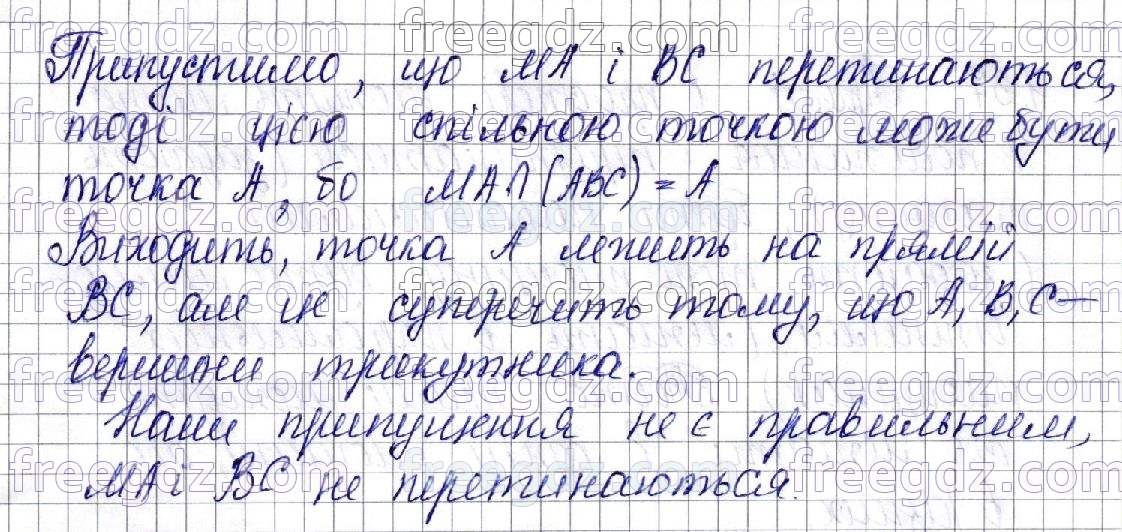 Припустимо, що МА і ВС перетинаються,
тоді цією спільною точкою може бути
точка А, бо МА∩(АВС) = А
Виходить, точка А лежить на прямій
ВС, але це суперечить тому, що А, В, С –
вершини трикутника.
Наше припущення не є правильним,
МА і ВС не перетинаються.
freegdz.com